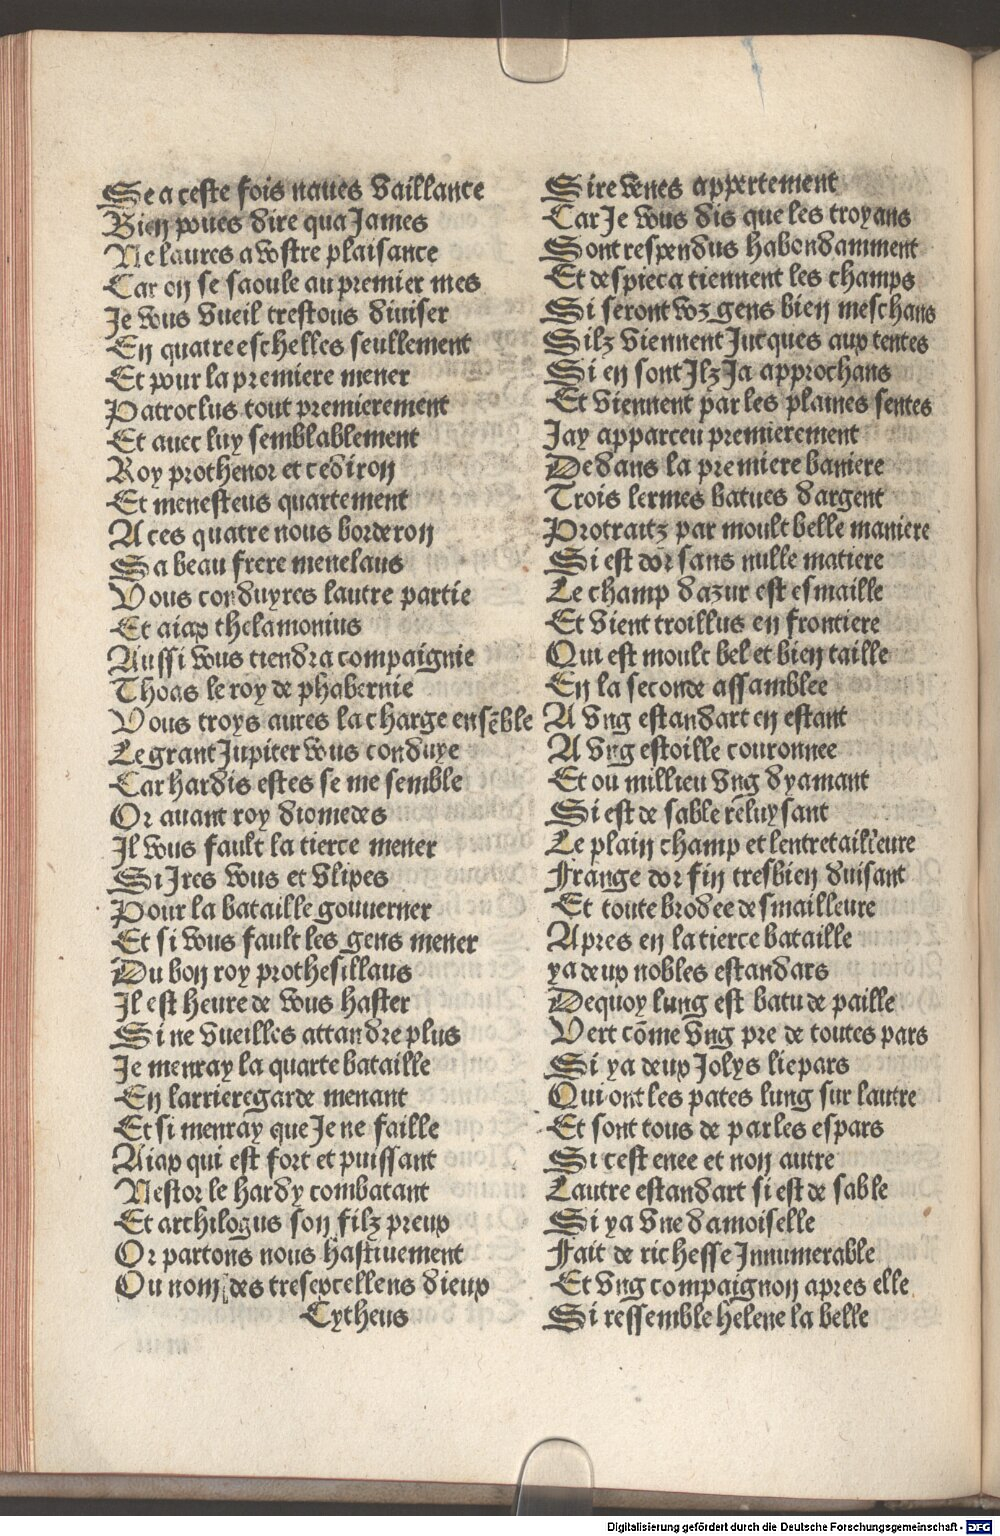 Se a ceste fois naues Vaillance
Bien poues dire qua James
Ne laures a vostre plaisance
Car on se saoule au premier mes
Je vous Vueil trestous diuiser
En quatre eschelles seullement
Et pour la premiere mener
Patroclus tout premierement
Et auec luy semblablement
Roy prothenor et cediron
Et menesteus quartement
A ces quatre nous borderon
Sa beau frere menelaus
Vous conduyres lautre partie
Et aiax thelamonius
Aussi vous tiendra compaignie
Thoas le roy de phabernie
Vous troys aures la charge ensēble
Le grant Jupiter vous conduye
Car hardis estes se me semble
Or auant roy diomedes
Il vous fault la tierce mener
Si Ires vous et Vlixes
Pour la bataille gouuerner
Et si vous fault les gens mener
Du bon roy prothesillaus
Il est heure de vous haster
Si ne Vueilles attandre plus
Je menray la quarte bataille
En larrieregarde menant
Et si menray que Je ne faille
Aiax qui est fort et puissant
Nestor le hardy combatant
Et archilogus son filz preux
Or partons nous hastiuement
Ou nom des tresexcellens dieux
Cytheus
Sire venes appertement
Car Je vous dis que les troyans
Sont respendus habondamment
Et despieca tiennent les champs
Si seront voz gens bien meschans
Silz Viennent Jucques aux tentes
Si en sont Ilz Ja approchans
Et Viennent par les plaines sentes
Jay apparceu premierement
Dedans la premiere baniere
Trois lermes batues dargent
Protraitz par moult belle maniere
Si est dor sans nulle matiere
Le champ dazur est esmaille
Et Vient troillus en frontiere
Qui est moult bel et bien taille
En la seconde assamblee
A Vng estandart en estant
A Vng estoille couronnee
Et ou millieu Vng dyamant
Si est de sable rēluysant
Le plain champ et lentretailleure
Frange dor fin tresbien duisant
Et toute brodee desmailleure
Apres en la tierce bataille
ya deux nobles estandars
Dequoy lung est batu de paille
Vert cōme Vng pre de toutes pars
Si ya deux Jolys liepars
Qui ont les pates lung sur lautre
Et sont tous de par les espars
Si cest enee et non autre
Lautre estandart si est de sable
Si ya Vne damoiselle
Fait de richesse Innumerable
Et Vng compaignon apres elle
Si ressemble helene la belle
Digitalisierung gefördert durch die Deutsche Forschungsgemeinschaft - DFG